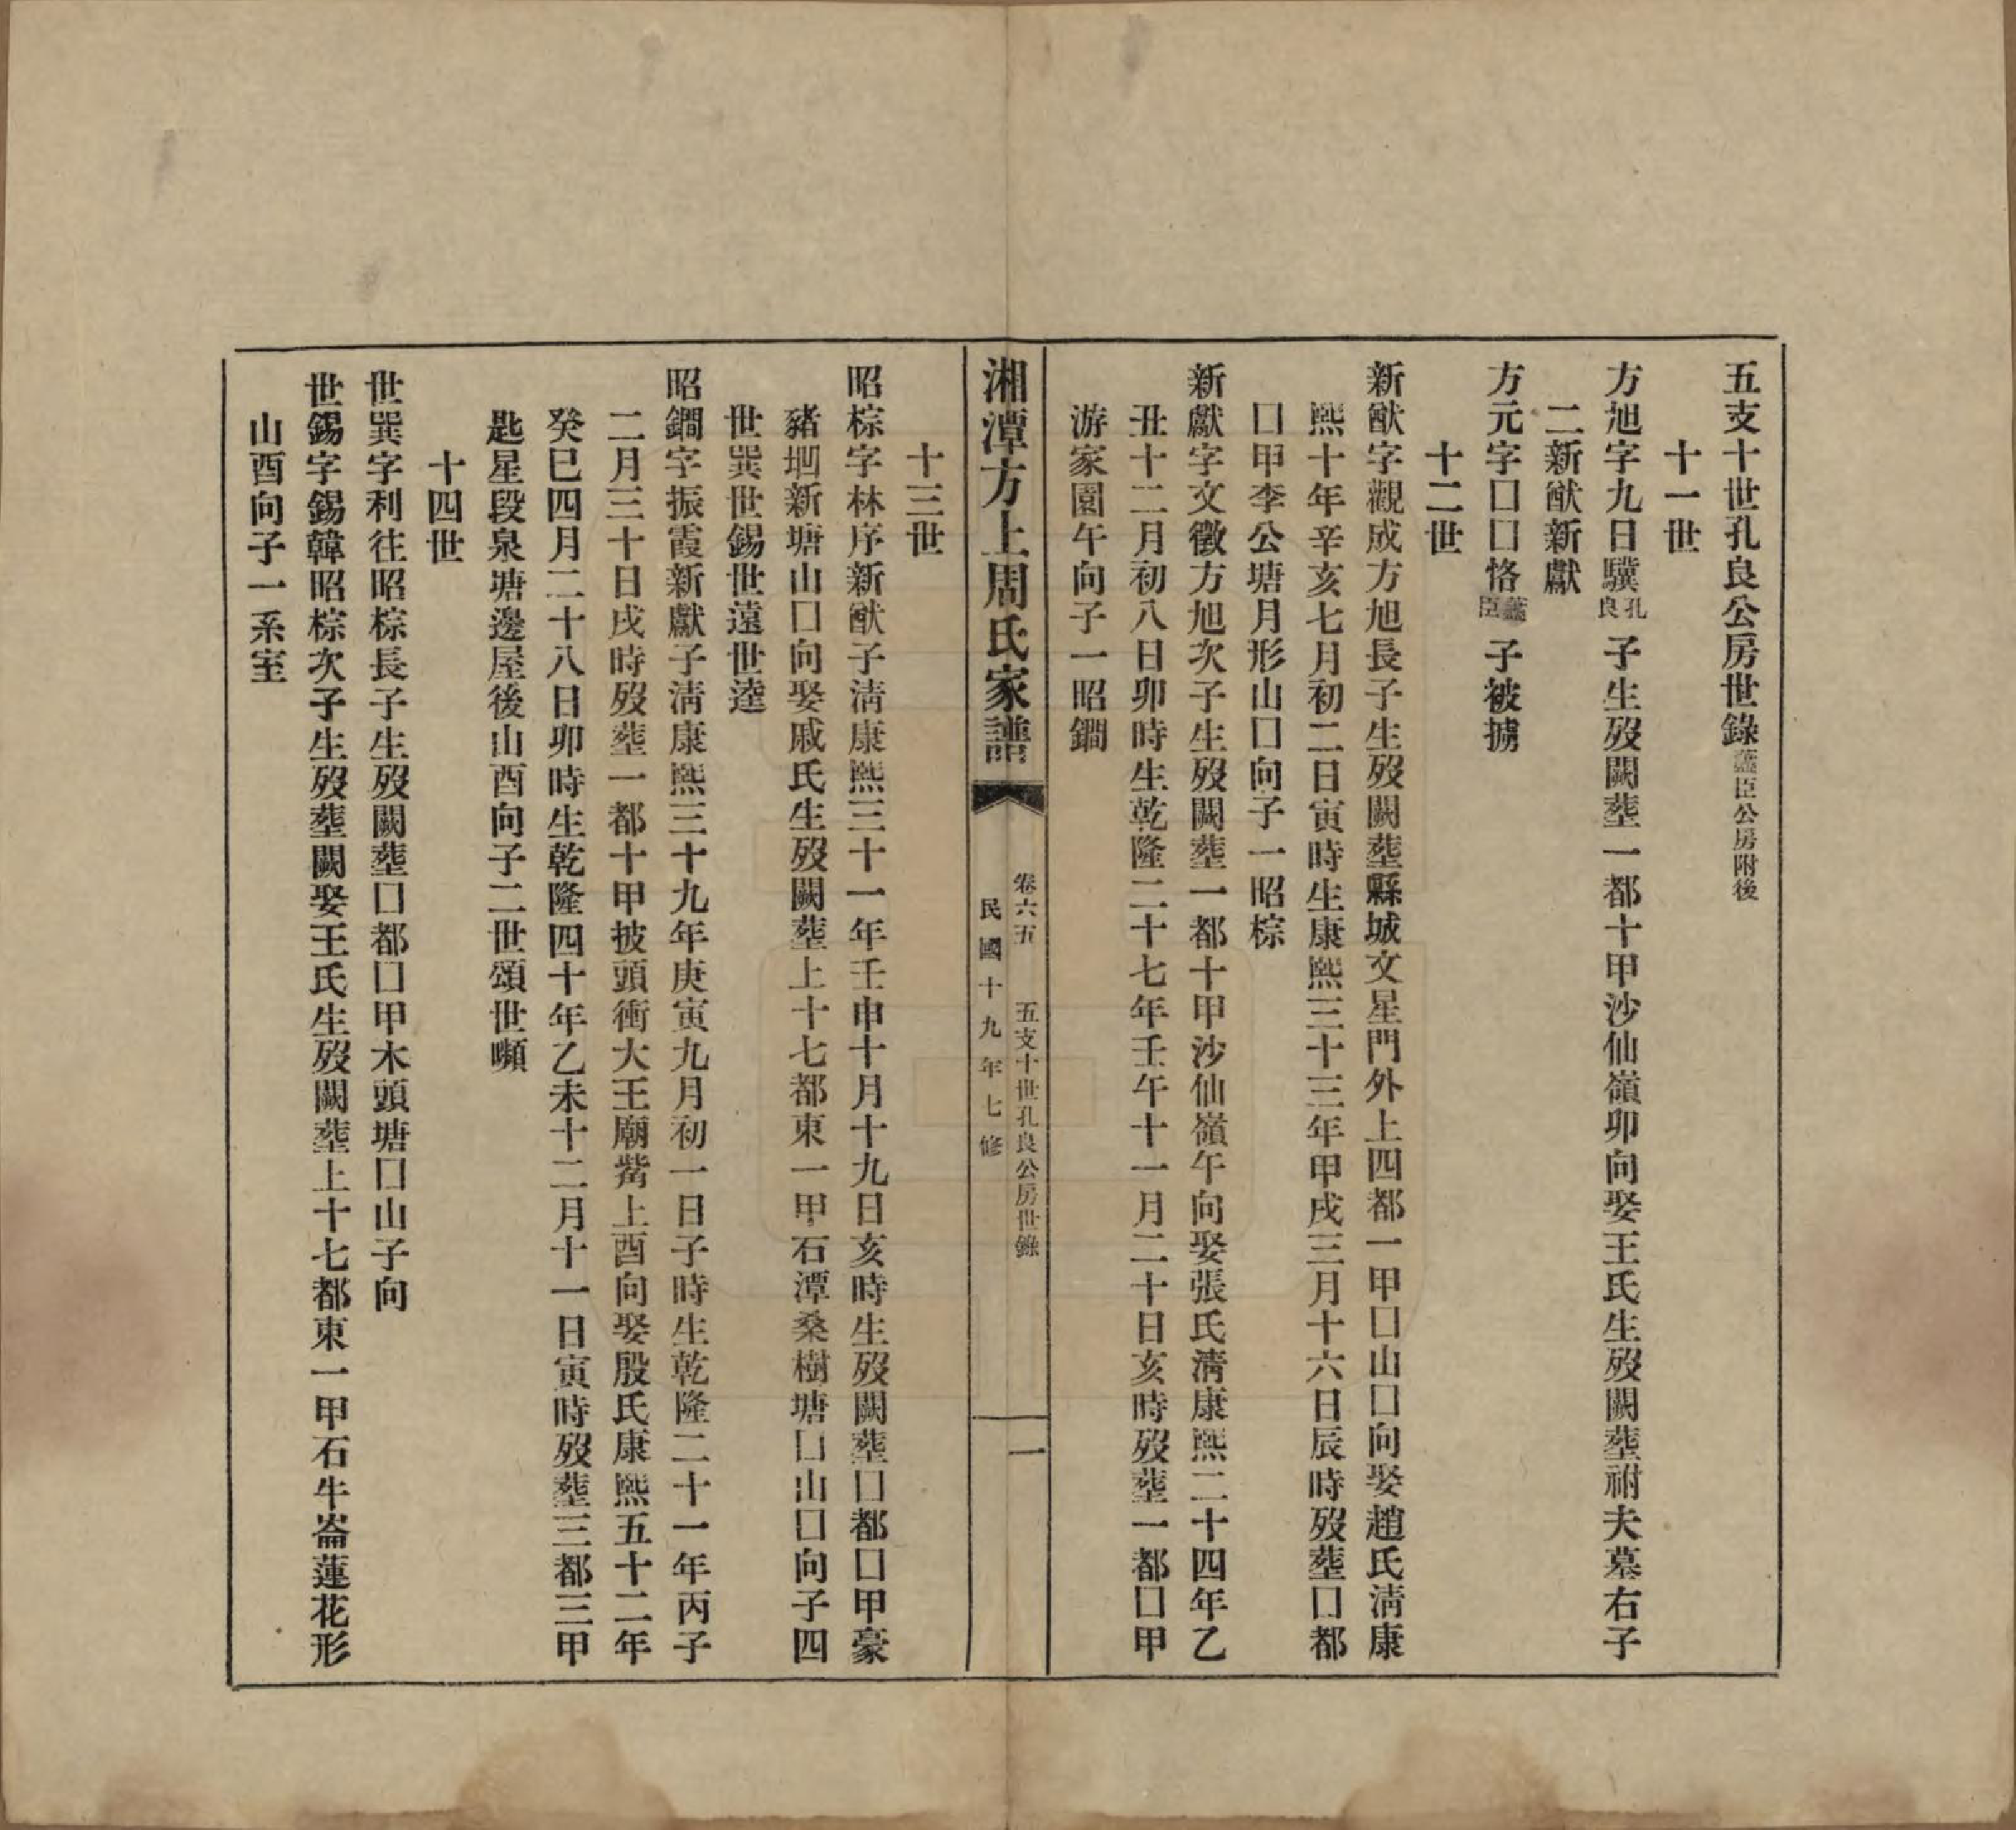 五支十世孔良公房世錄藎臣公房附後
十一世
方旭字九日驥孔良子生歿闕葬一都十甲沙仙嶺卯向娶王氏生歿闕葬祔夫墓右子
二新猷新獻
方元字囗囗恪藎臣子被擄
十二世
新猷字觀成方旭長子生歿闕葬縣城文星門外上四都一甲囗山囗向娶趙氏淸康
熙十年辛亥七月初二日寅時生康熙三十三年甲戌三月十六日辰時歿葬囗都
囗甲李公塘月形山囗向子一昭棕
新獻字文徵方旭次子生歿闕葬一都十甲沙仙嶺午向娶張氏淸康熙二十四年乙
丑十二月初八日卯時生乾隆二十七年壬午十一月二十日亥時歿葬一都囗甲
游家園午向子一昭鐗
湘潭方上周氏家譜
卷六五 五支十世孔良公房世錄
民國十九年七修
一
十三世
昭棕字林序新猷子淸康熙三十一年壬申十月十九日亥時生歿闕葬囗都囗甲豪
豬堌新塘山囗向娶戚氏生歿闕葬上十七都東一甲石潭桑樹塘囗山囗向子四
世巽世錫世遠世逵
昭鐗字振霞新獻子淸康熙三十九年庚寅九月初一日子時生乾隆二十一年丙子
二月三十日戌時歿葬一都十甲披頭衝大王廟觜上酉向娶殷氏康熙五十二年
癸巳四月二十八日卯時生乾隆四十年乙未十二月十一日寅時歿葬三都三甲
匙星段泉塘邊屋後山酉向子二世頌世嚬
十四世
世巽字利往昭棕長子生歿闕葬囗都囗甲木頭塘囗山子向
世錫字錫韓昭棕次子生歿葬闕娶王氏生歿闕葬上十七都東一甲石牛崙蓮花形
山酉向子一系室